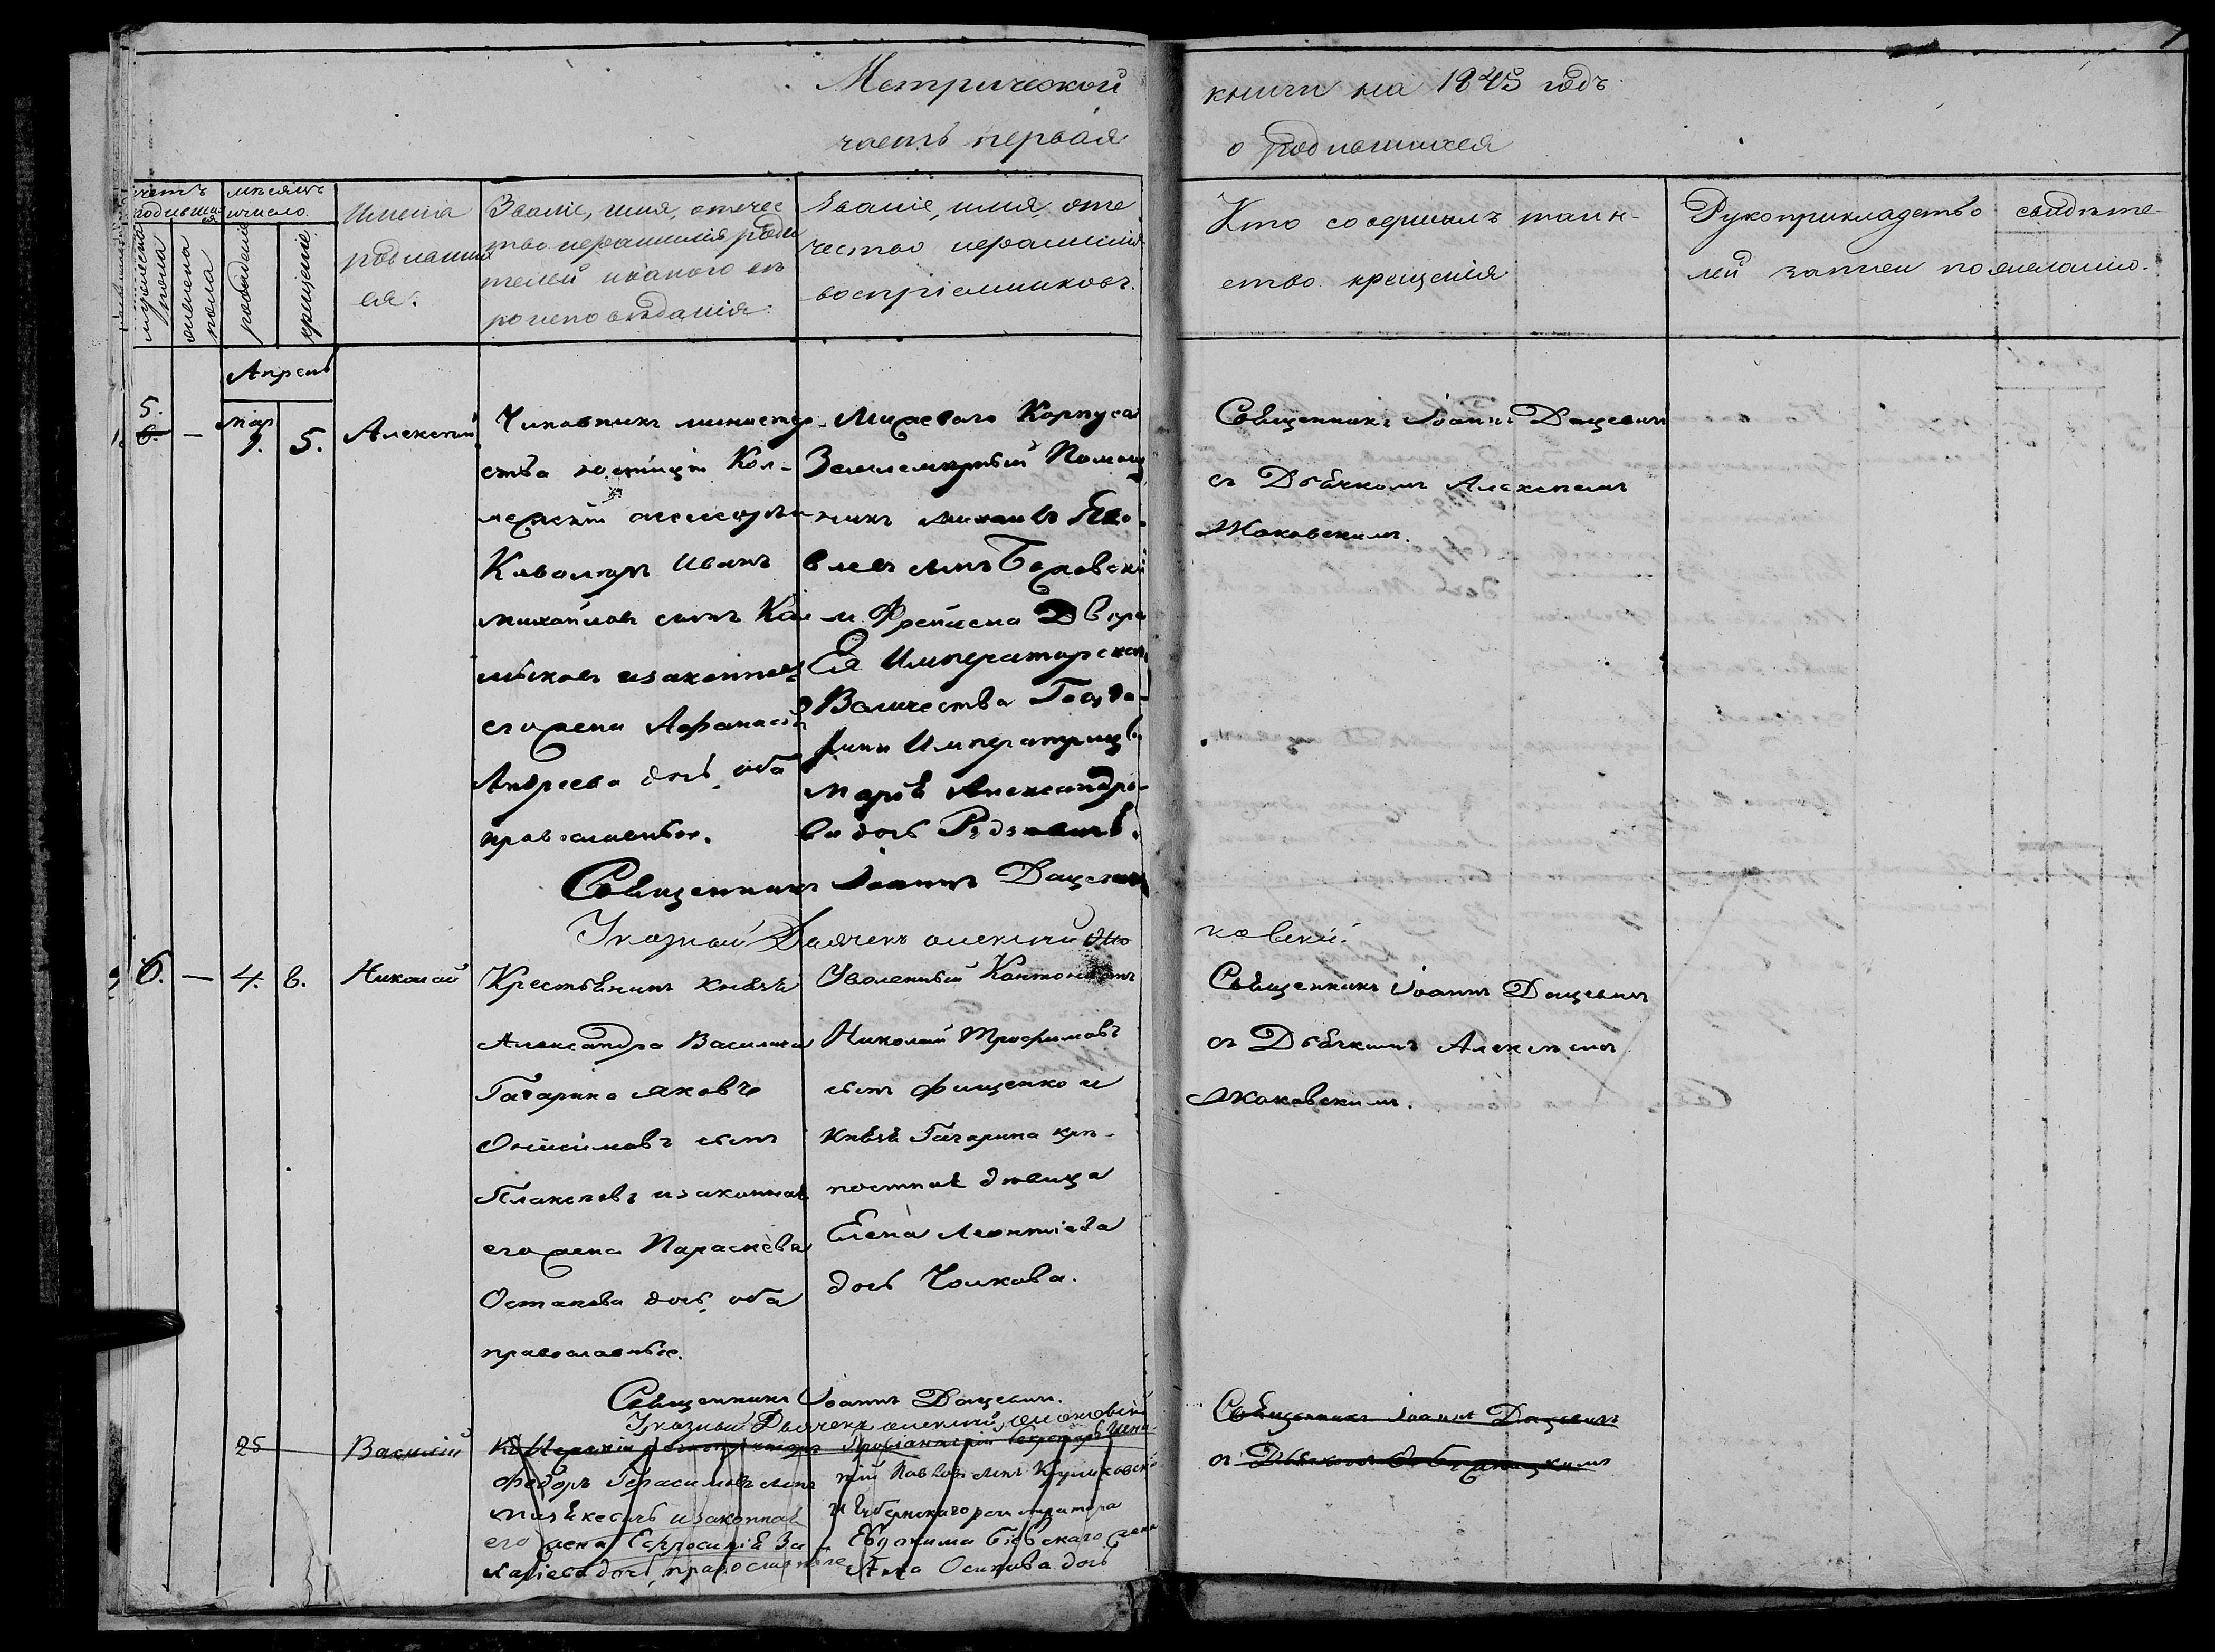 Метрической книги на 1845 годъ
часть первая о родившихся
счетъ родившихся
мужеска пола
женска пола
месяцъ и число
рожденія
крещенія
Имена
родивших
ся.
Званіе, имя, отечес
тво и фамилія роди
телей и какого въ
роисповеданія.
Званіе, имя, оте
чество и фамилія
воспріемниковъ.
Кто совершилъ таин-
ство крещенія
Рукоприкладство свидѣте-
лей записи по желанію.
Апрель
5. — мар 5. Алексѣй
Чиновникъ министер
ства юстиціи Кол-
лежскій ассесоръ и
Кавалеръ Иванъ
Михайловъ сынъ
и законная
его жена Афанасія
Андреева дочь, оба
православные.
Межеваго Корпуса
Землемерный Помощ
никъ Яко
влевъ сынъ
и Фрейлена Двора
Ея Императорскаго
Величества Госуда-
рини Императрицы
Марія Александро-
ва дочь
Священникъ Іоаннъ Дацевичъ
съ Дьячкомъ Алексѣемъ
Жаковскимъ.
Священникъ Іоаннъ Дацевичъ
Указный Дьячекъ Алексій Жа
ковскій.
6. — 4. 6. Николай
Крестьянинъ Князя
Александра Василіева
Гагарина Яковъ
Онисимовъ сынъ
и законная
его жена Параскева
Остапова дочь, оба
православные.
Уволенный Кантонистъ
Николай Трофимовъ
сынъ Фищенко и
Князя Гагарина крѣ-
постная девица
Елена Леонтіева
дочь
Священникъ Іоаннъ Дацевичъ
съ Дьячкомъ Алексѣемъ
Жаковскимъ.
Священникъ Іоаннъ Дацевичъ.
Указный Дьячекъ Алексій Жаковскій
25 Василій
Коллежскій регистраторъ
Федоръ Герасимовъ сынъ
и законная
его жена Ефросинія За
харіева дочь, православные
Провіантскій Секретарь
сынъ
и Губернскаго регистратора
Евдокима жена
Анна Осипова дочь
Священникъ Іоаннъ Дацевичъ
съ